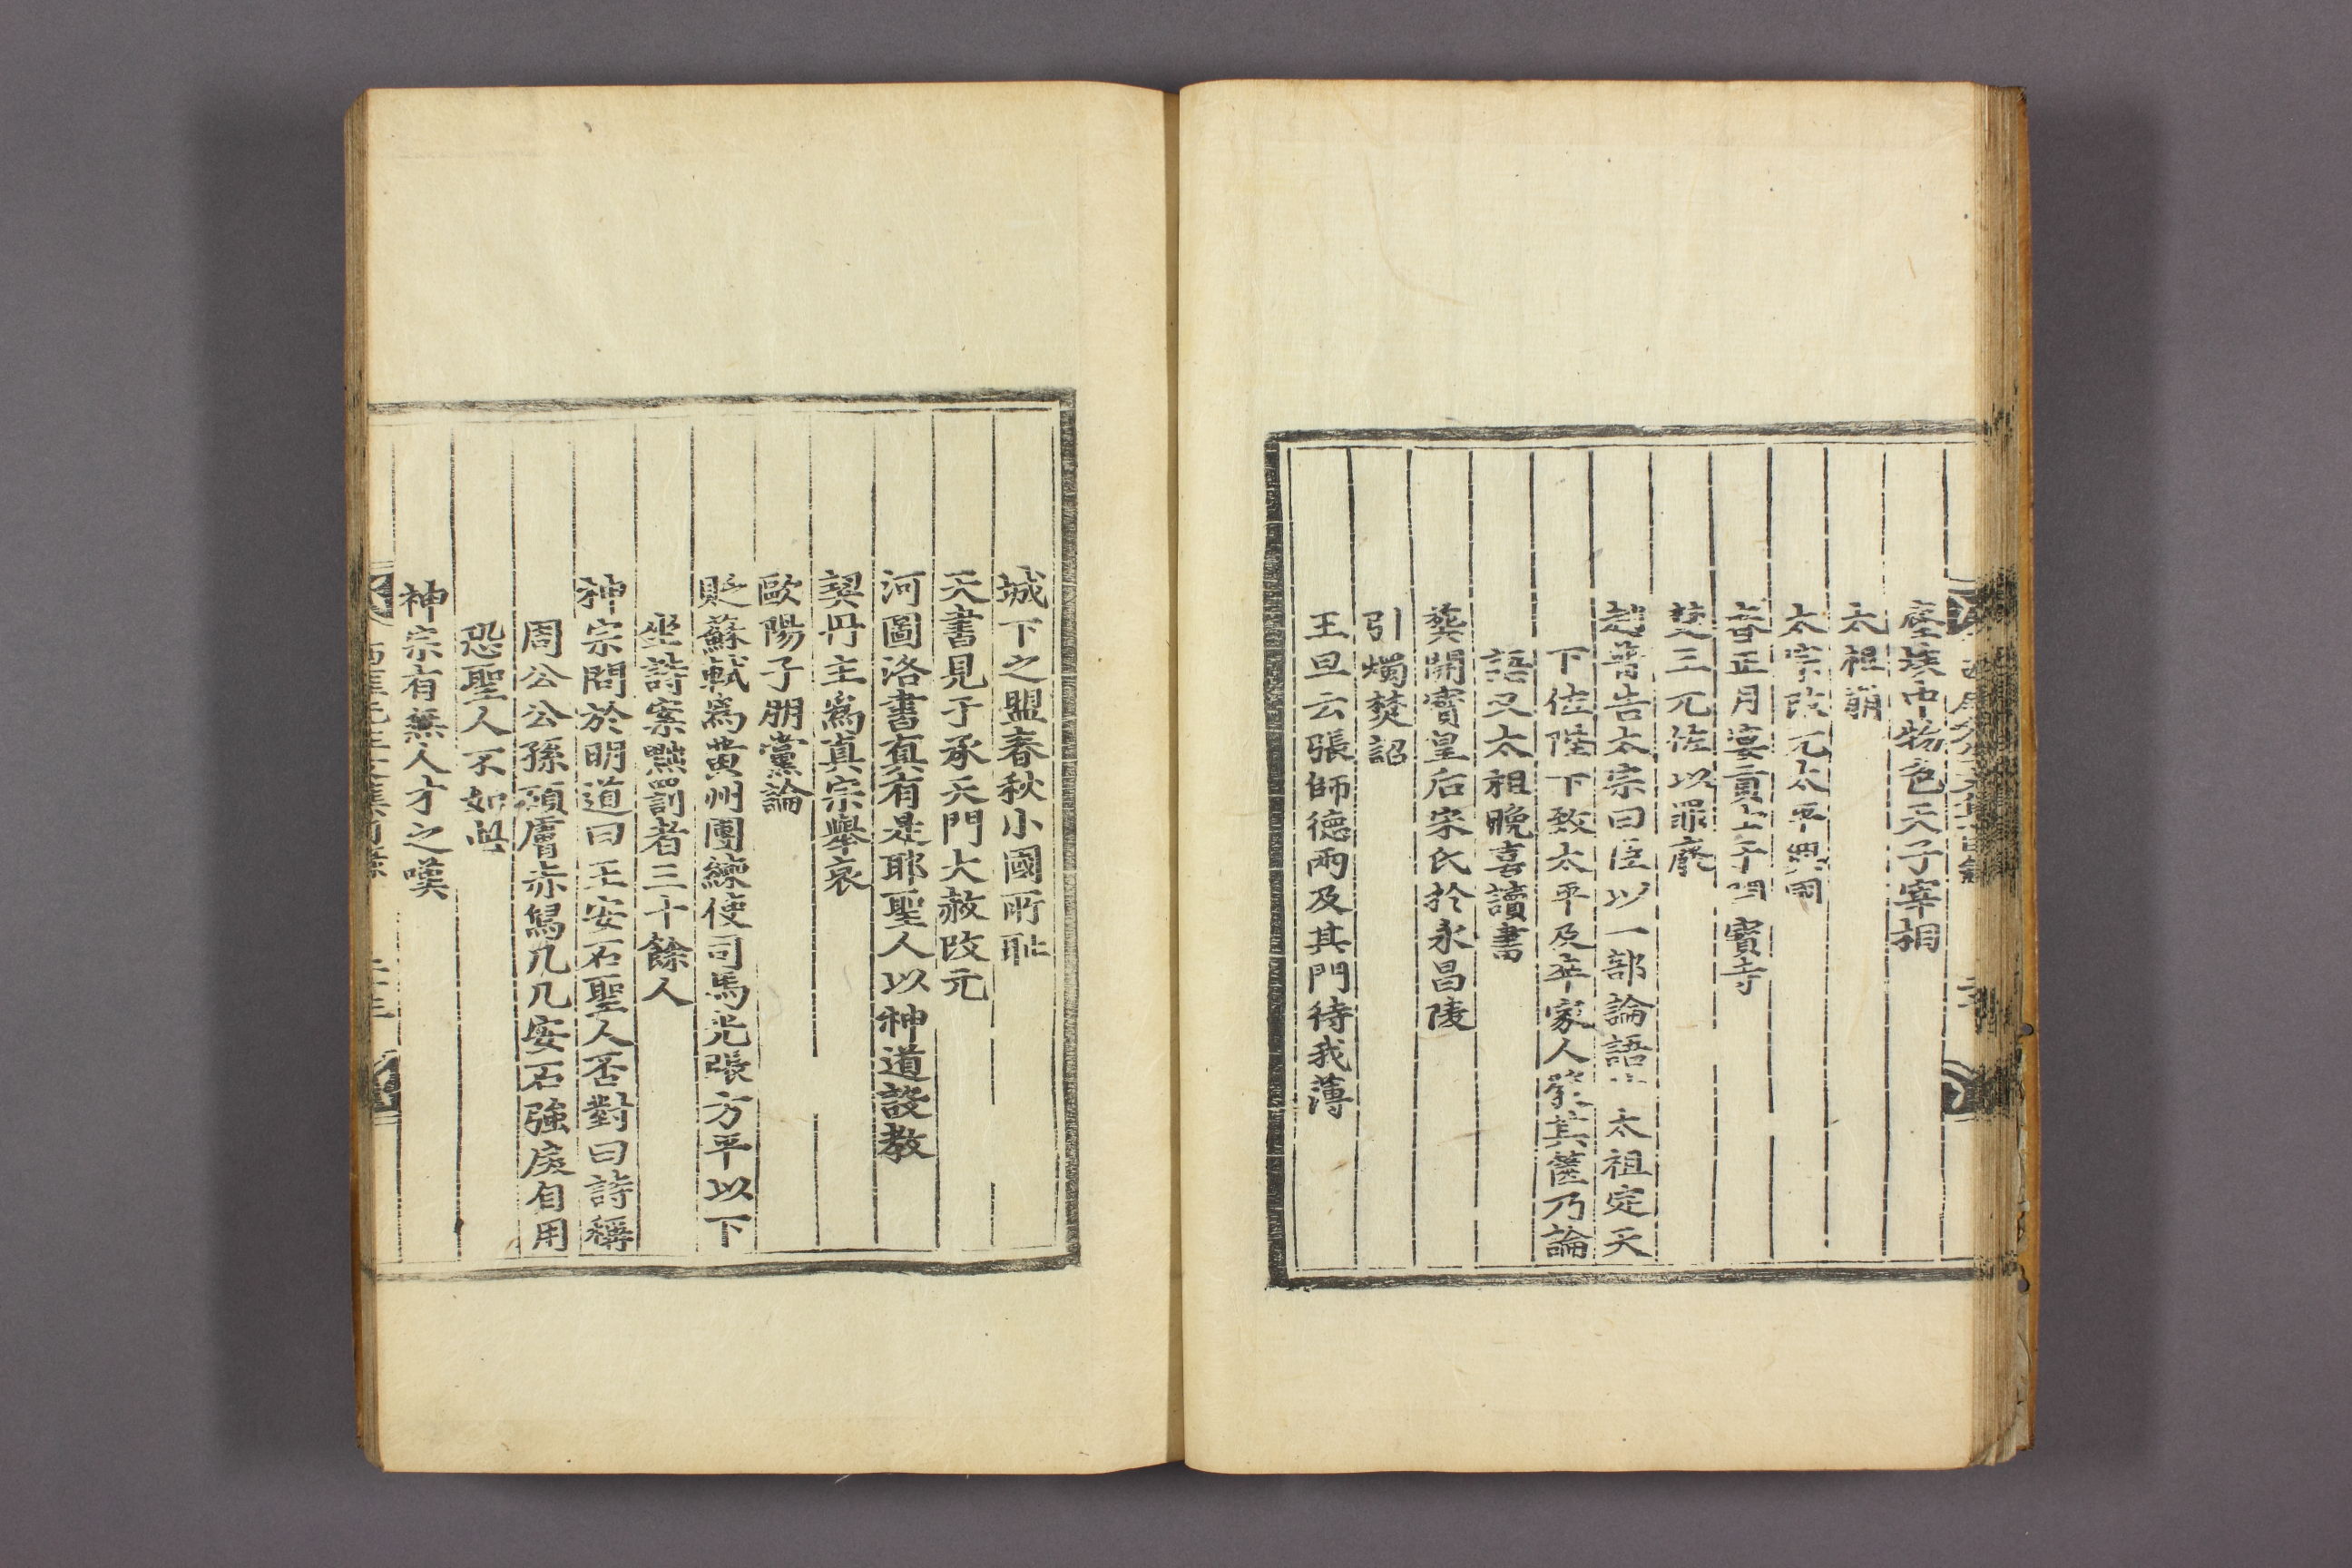 塵埃中物色天子宰相
太祖崩
太宗改元太平興國
春正月宴貢士于開寶寺
楚王元佐以罪廢
趙普告太宗曰臣以一部論語 太祖定天
下佐陛下致太平及卒家人發其篋乃論
語又太祖晩喜讀書
葬開寶皇后宋氏於永昌陵
引燭焚詔
王旦云張師德兩及其門待我薄
城下之盟春秋小國所耻
天書見于承天門大赦改元
河圖洛書真有是耶聖人以神道設教
契丹主爲真宗擧哀
歐陽子朋黨論
貶蘇軾爲黄州團練使司馬光張方平以下
坐詩案黜罰者三十餘人
神宗問於明道曰王安石聖人否對曰詩稱
周公公孫碩膚赤舃几几安石強戾自用
恐聖人不如此
神宗有無人才之嘆